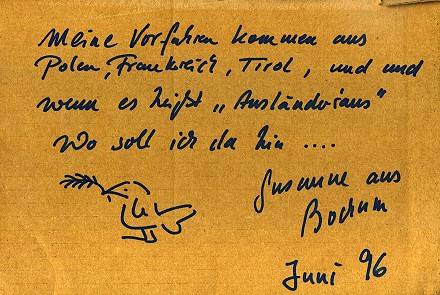 Meine Vorfahren kommen aus
Polen, Frankreich, Tirol, und und
wenn es heißt „Ausländer raus"
Wo soll ich da hin ....
Susanne aus
Bochum
Juni 96